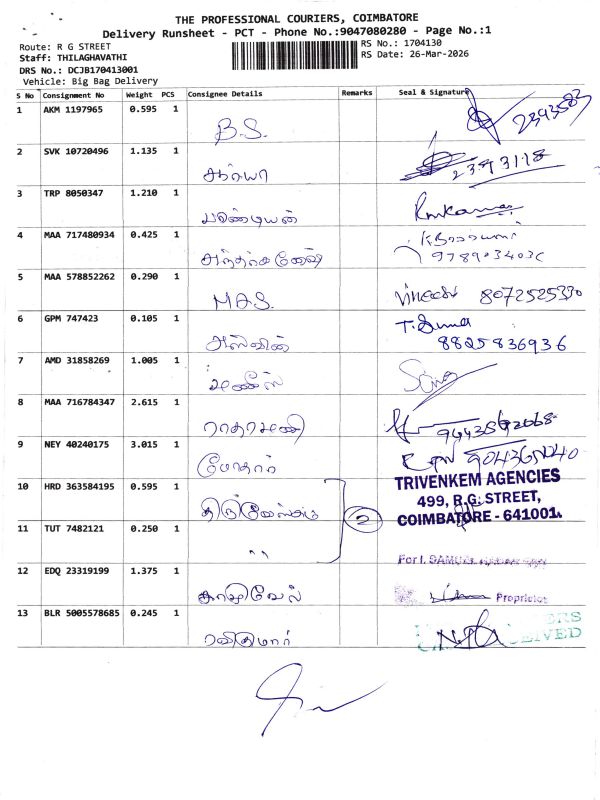 THE PROFESSIONAL COURIERS, COIMBATORE
Delivery Runsheet - PCT - Phone No.:9047080280 - Page No.:1
Route: R G STREET
RS No.: 1704130
Staff: THILAGHAVATHI
RS Date: 26-Mar-2026
DRS No.: DCJB170413001
Vehicle: Big Bag Delivery
S No Consignment No Weight PCS Consignee Details Remarks Seal & Signature
1 AKM 1197965 0.595 1
B.S. 2393583
2 SVK 10720496 1.135 1
சூர்யா 2393118
3 TRP 8050347 1.210 1
பாண்டியன் Rmkumar
4 MAA 717480934 0.425 1
5 MAA 578852262 0.290 1
M.A.S. Vineesh 8072525330
6 GPM 747423 0.105 1
அஸ்வின் T. Suma
8825836936
7 AMD 31858269 1.005 1
8 MAA 716784347 2.615 1
ராதாமணி
9 NEY 40240175 3.015 1
போதார்
10 HRD 363584195 0.595 1
TRIVENKEM AGENCIES
499, R.G. STREET,
COIMBATORE - 641001.
2
11 TUT 7482121 0.250 1
"
For I. SAMUEL
12 EDQ 23319199 1.375 1
காஷிவேல் Proprietor
13 BLR 5005578685 0.245 1
ரவிகுமார் RECEIVED